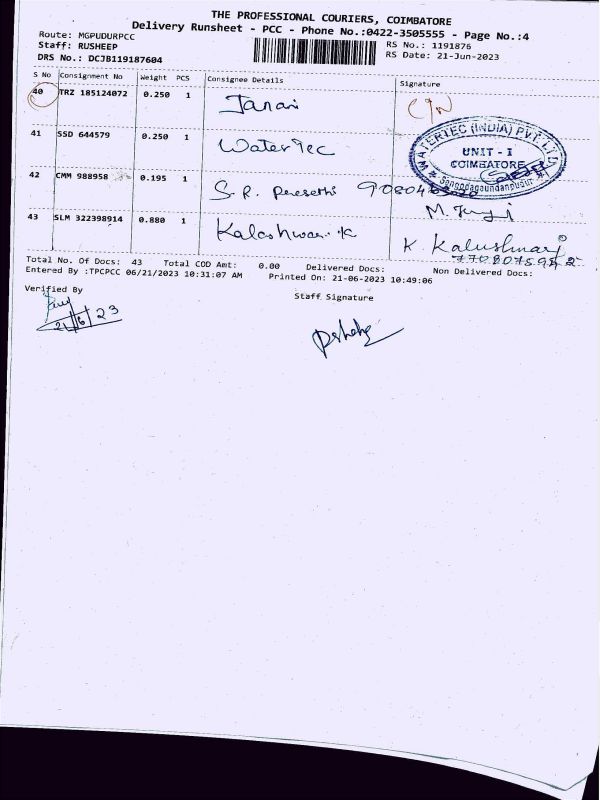 THE PROFESSIONAL COURIERS, COIMBATORE
Delivery Runsheet - PCC - Phone No.:0422-3505555 - Page No.:4
Route: MGPUDURPCC
RS No.: 1191876
Staff: RUSHEEP
RS Date: 21-Jun-2023
DRS No.: DCJB119187604
S No Consignment No Weight PCS Consignee Details Signature
40 TRZ 185124072 0.250 1 Janani
41 SSD 644579 0.250 1 Watertec
WATERTEC (INDIA) PVT. LTD.
UNIT - I
COIMBATORE
42 CMM 988958 0.195 1 S.R.
M.
43 SLM 322398914 0.880 1 Kaleshwari.K
K. Kaleshwari
Total No. Of Docs: 43 Total COD Amt: 0.00 Delivered Docs: Non Delivered Docs:
Entered By :TPCPCC 06/21/2023 10:31:07 AM Printed On: 21-06-2023 10:49:06
Verified By
Staff Signature
21/6/23